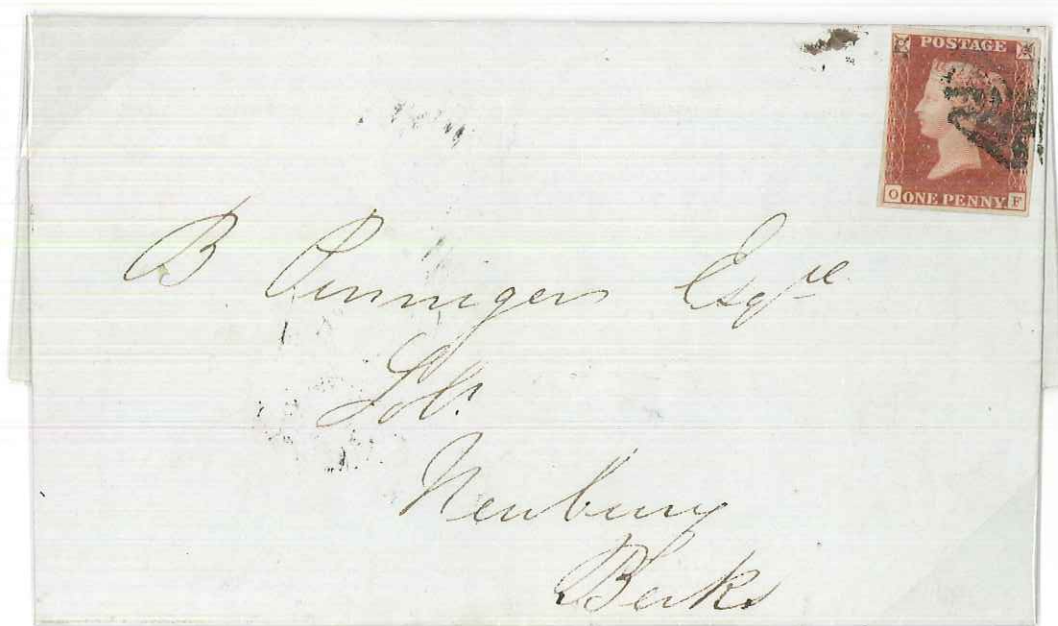 POSTAGE
O ONE PENNY F
B Pinniger Esqre
Solr.
Newbury
Berks